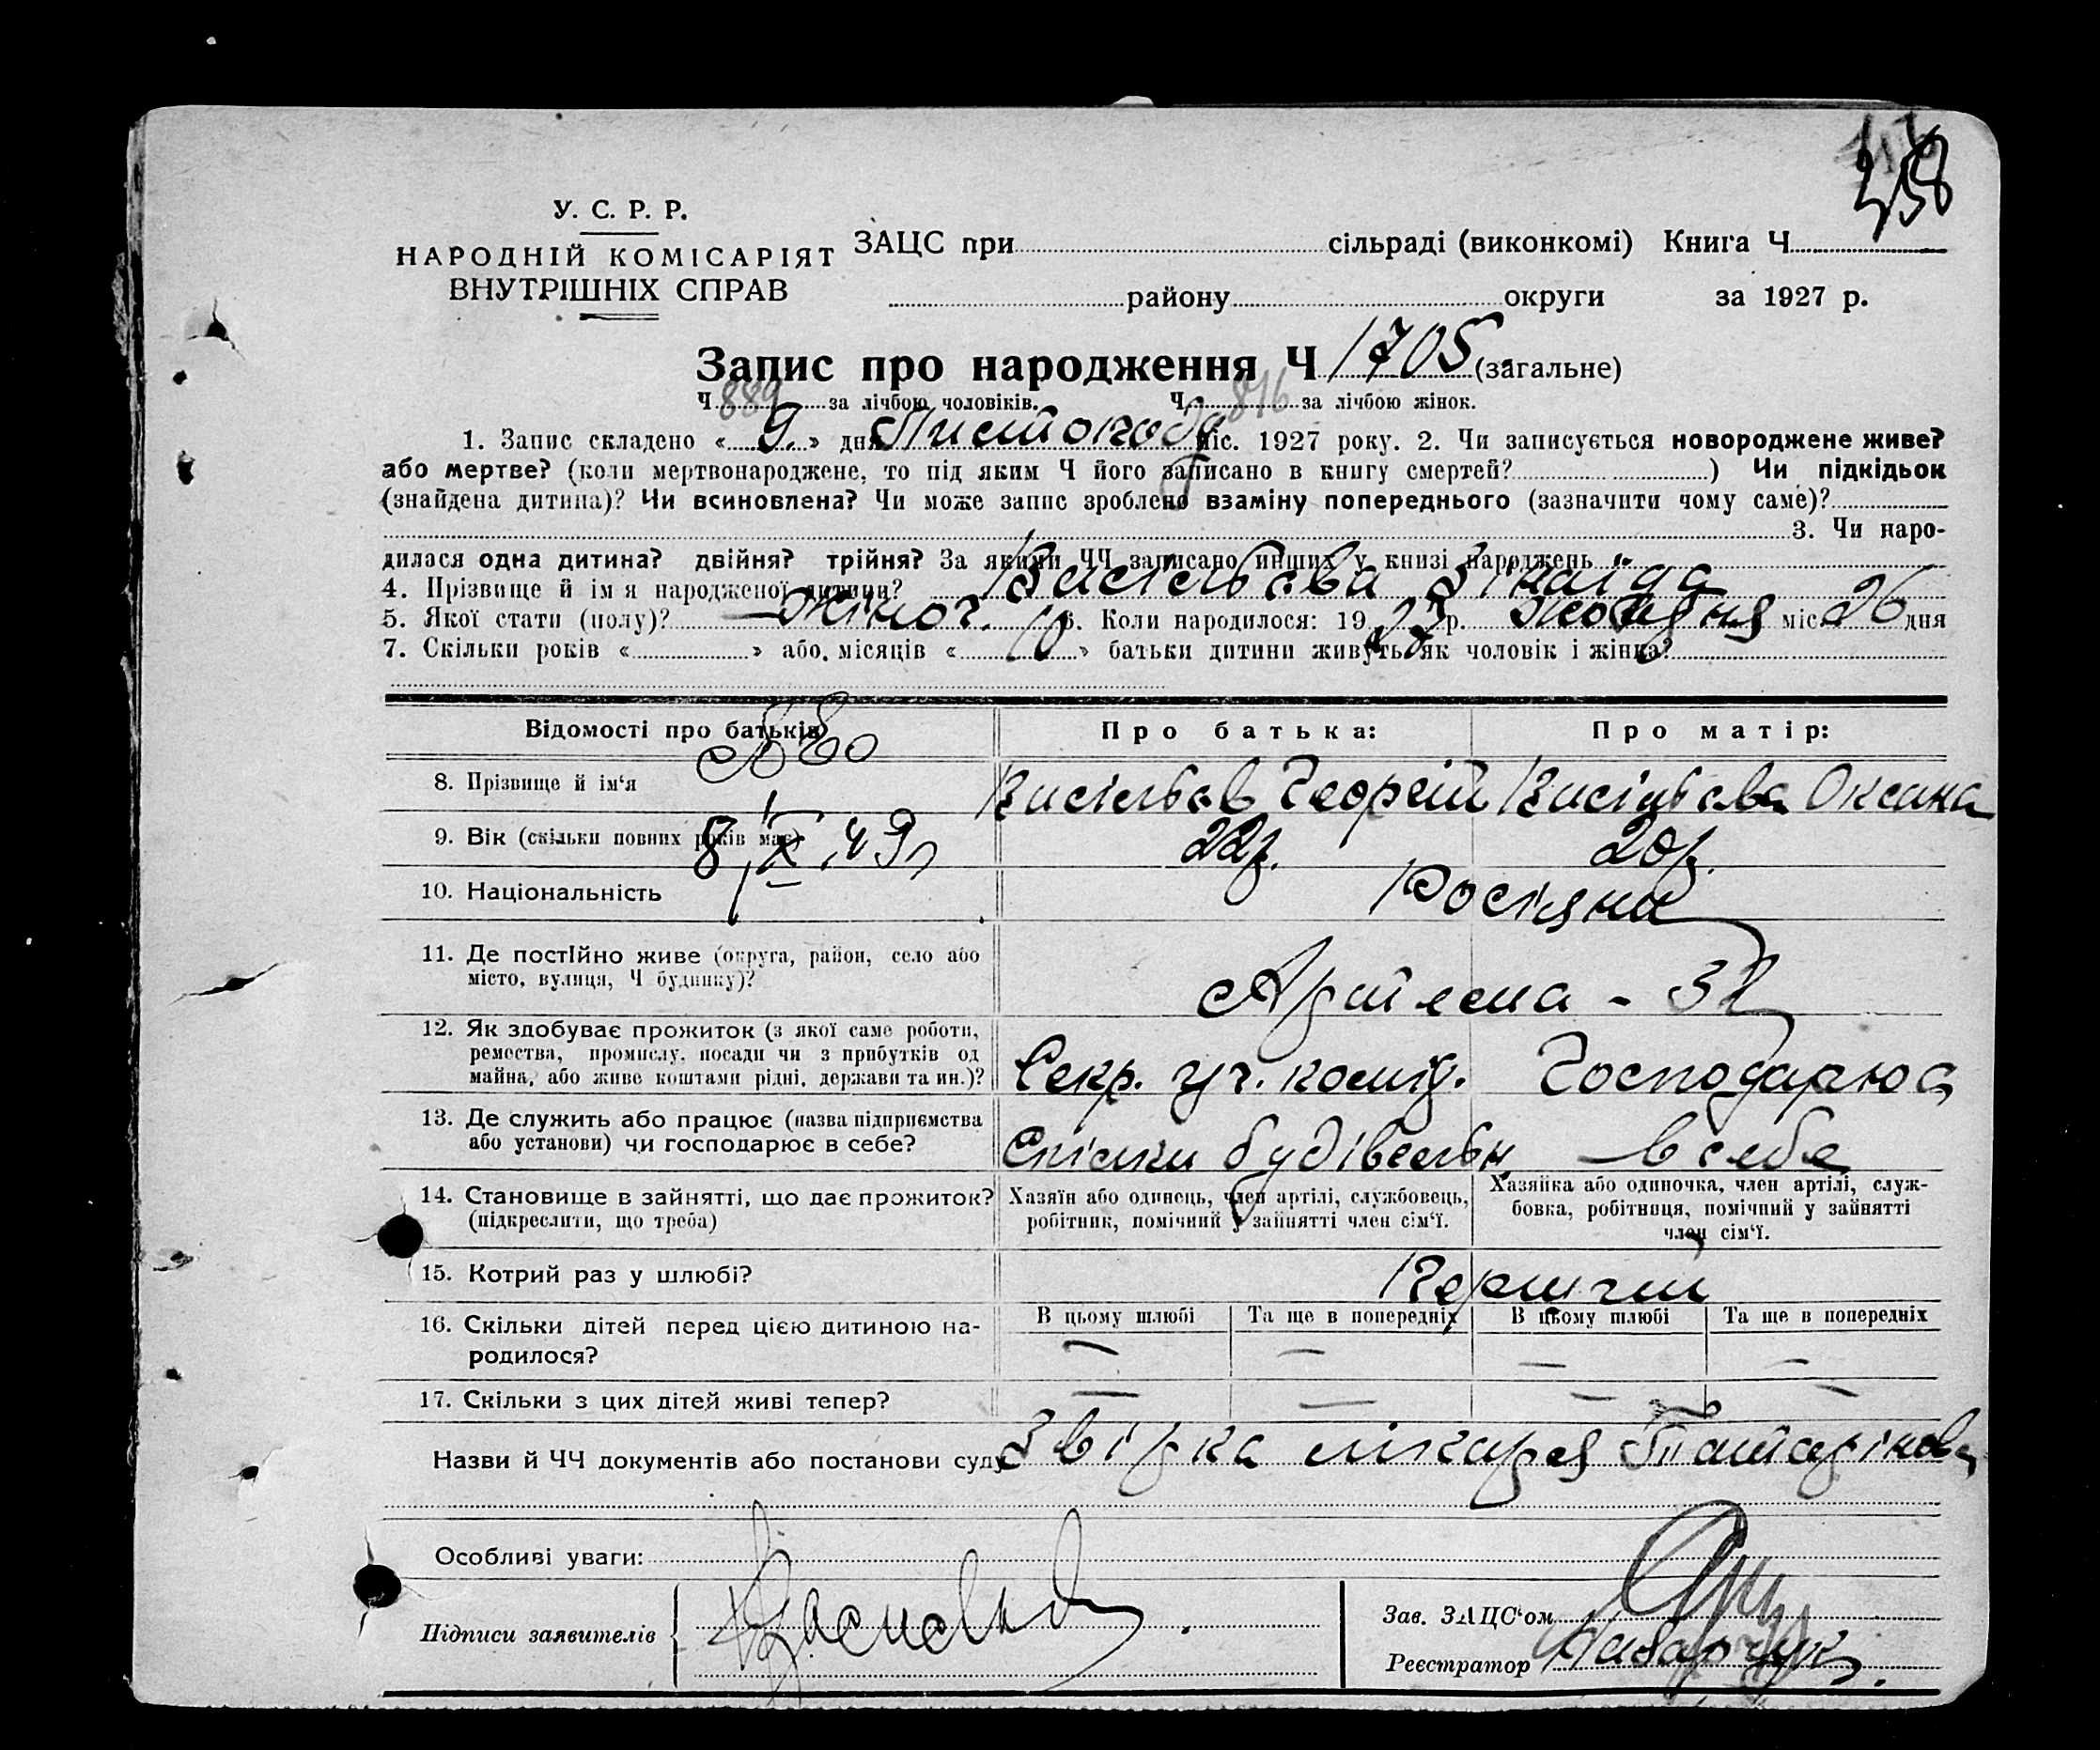 458
У. С. Р. Р.
НАРОДНІЙ КОМІСАРІЯТ
ВНУТРІШНІХ СПРАВ
ЗАЦС при сільраді (виконкомі) Книга Ч.
району округи за 1927 р.
Запис про народження Ч 1705 (загальне)
Ч. 889 за лічбою чоловіків. Ч. 816 за лічбою жінок.
1. Запис складено « 9. » дня Листопада міс. 1927 року. 2. Чи записується новороджене живе?
або мертве? (коли мертвонароджене, то під яким Ч його записано в книгу смертей? ) Чи підкідьок
(знайдена дитина)? Чи всиновлена? Чи може запис зроблено взаміну попереднього (зазначити чому саме)?
3. Чи наро-
дилася одна дитина? двійня? трійня? За якими ЧЧ записано инших у книзі народжень
4. Прізвище й ім'я народженої дитини? Васільєва Зінаїда
5. Якої стати (полу)? жіноч. 6. Коли народилося: 19 27 р. жовтня міс. 26 дня
7. Скільки років « » або місяців « 10 » батьки дитини живуть як чоловік і жінка?
Відомості про батьків Про батька: Про матір:
8. Прізвище й ім'я Васільєв Георгій Васільєва Оксана
9. Вік (скільки повних років має) 22 р. 20 р.
10. Національність Росіяни
11. Де постійно живе (округа, район, село або
місто, вулиця, Ч будинку)? Артема - 32
12. Як здобуває прожиток (з якої саме роботи,
ремества, промислу, посади чи з прибутків од
майна, або живе коштами рідні, держави та ин.)? Секр. уч. коміт. Господарює
13. Де служить або працює (назва підприємства
або установи) чи господарює в себе? Спілки будівельн. в себе
14. Становище в зайнятті, що дає прожиток?
(підкреслити, що треба)
Хазяїн або одинець, член артілі, службовець,
робітник, помічний у зайнятті член сім'ї.
Хазяйка або одиночка, член артілі, служ-
бовка, робітниця, помічний у зайнятті
член сім'ї.
15. Котрий раз у шлюбі? Перший
16. Скільки дітей перед цією дитиною на-
родилося?
В цьому шлюбі Та ще в попередніх В цьому шлюбі Та ще в попередніх
— — — —
17. Скільки з цих дітей живі тепер? — — — —
Назви й ЧЧ документів або постанови суду Звірка лікаря Татарінова
Особливі уваги:
Підписи заявителів
Зав. ЗАЦС'ом
Реєстратор